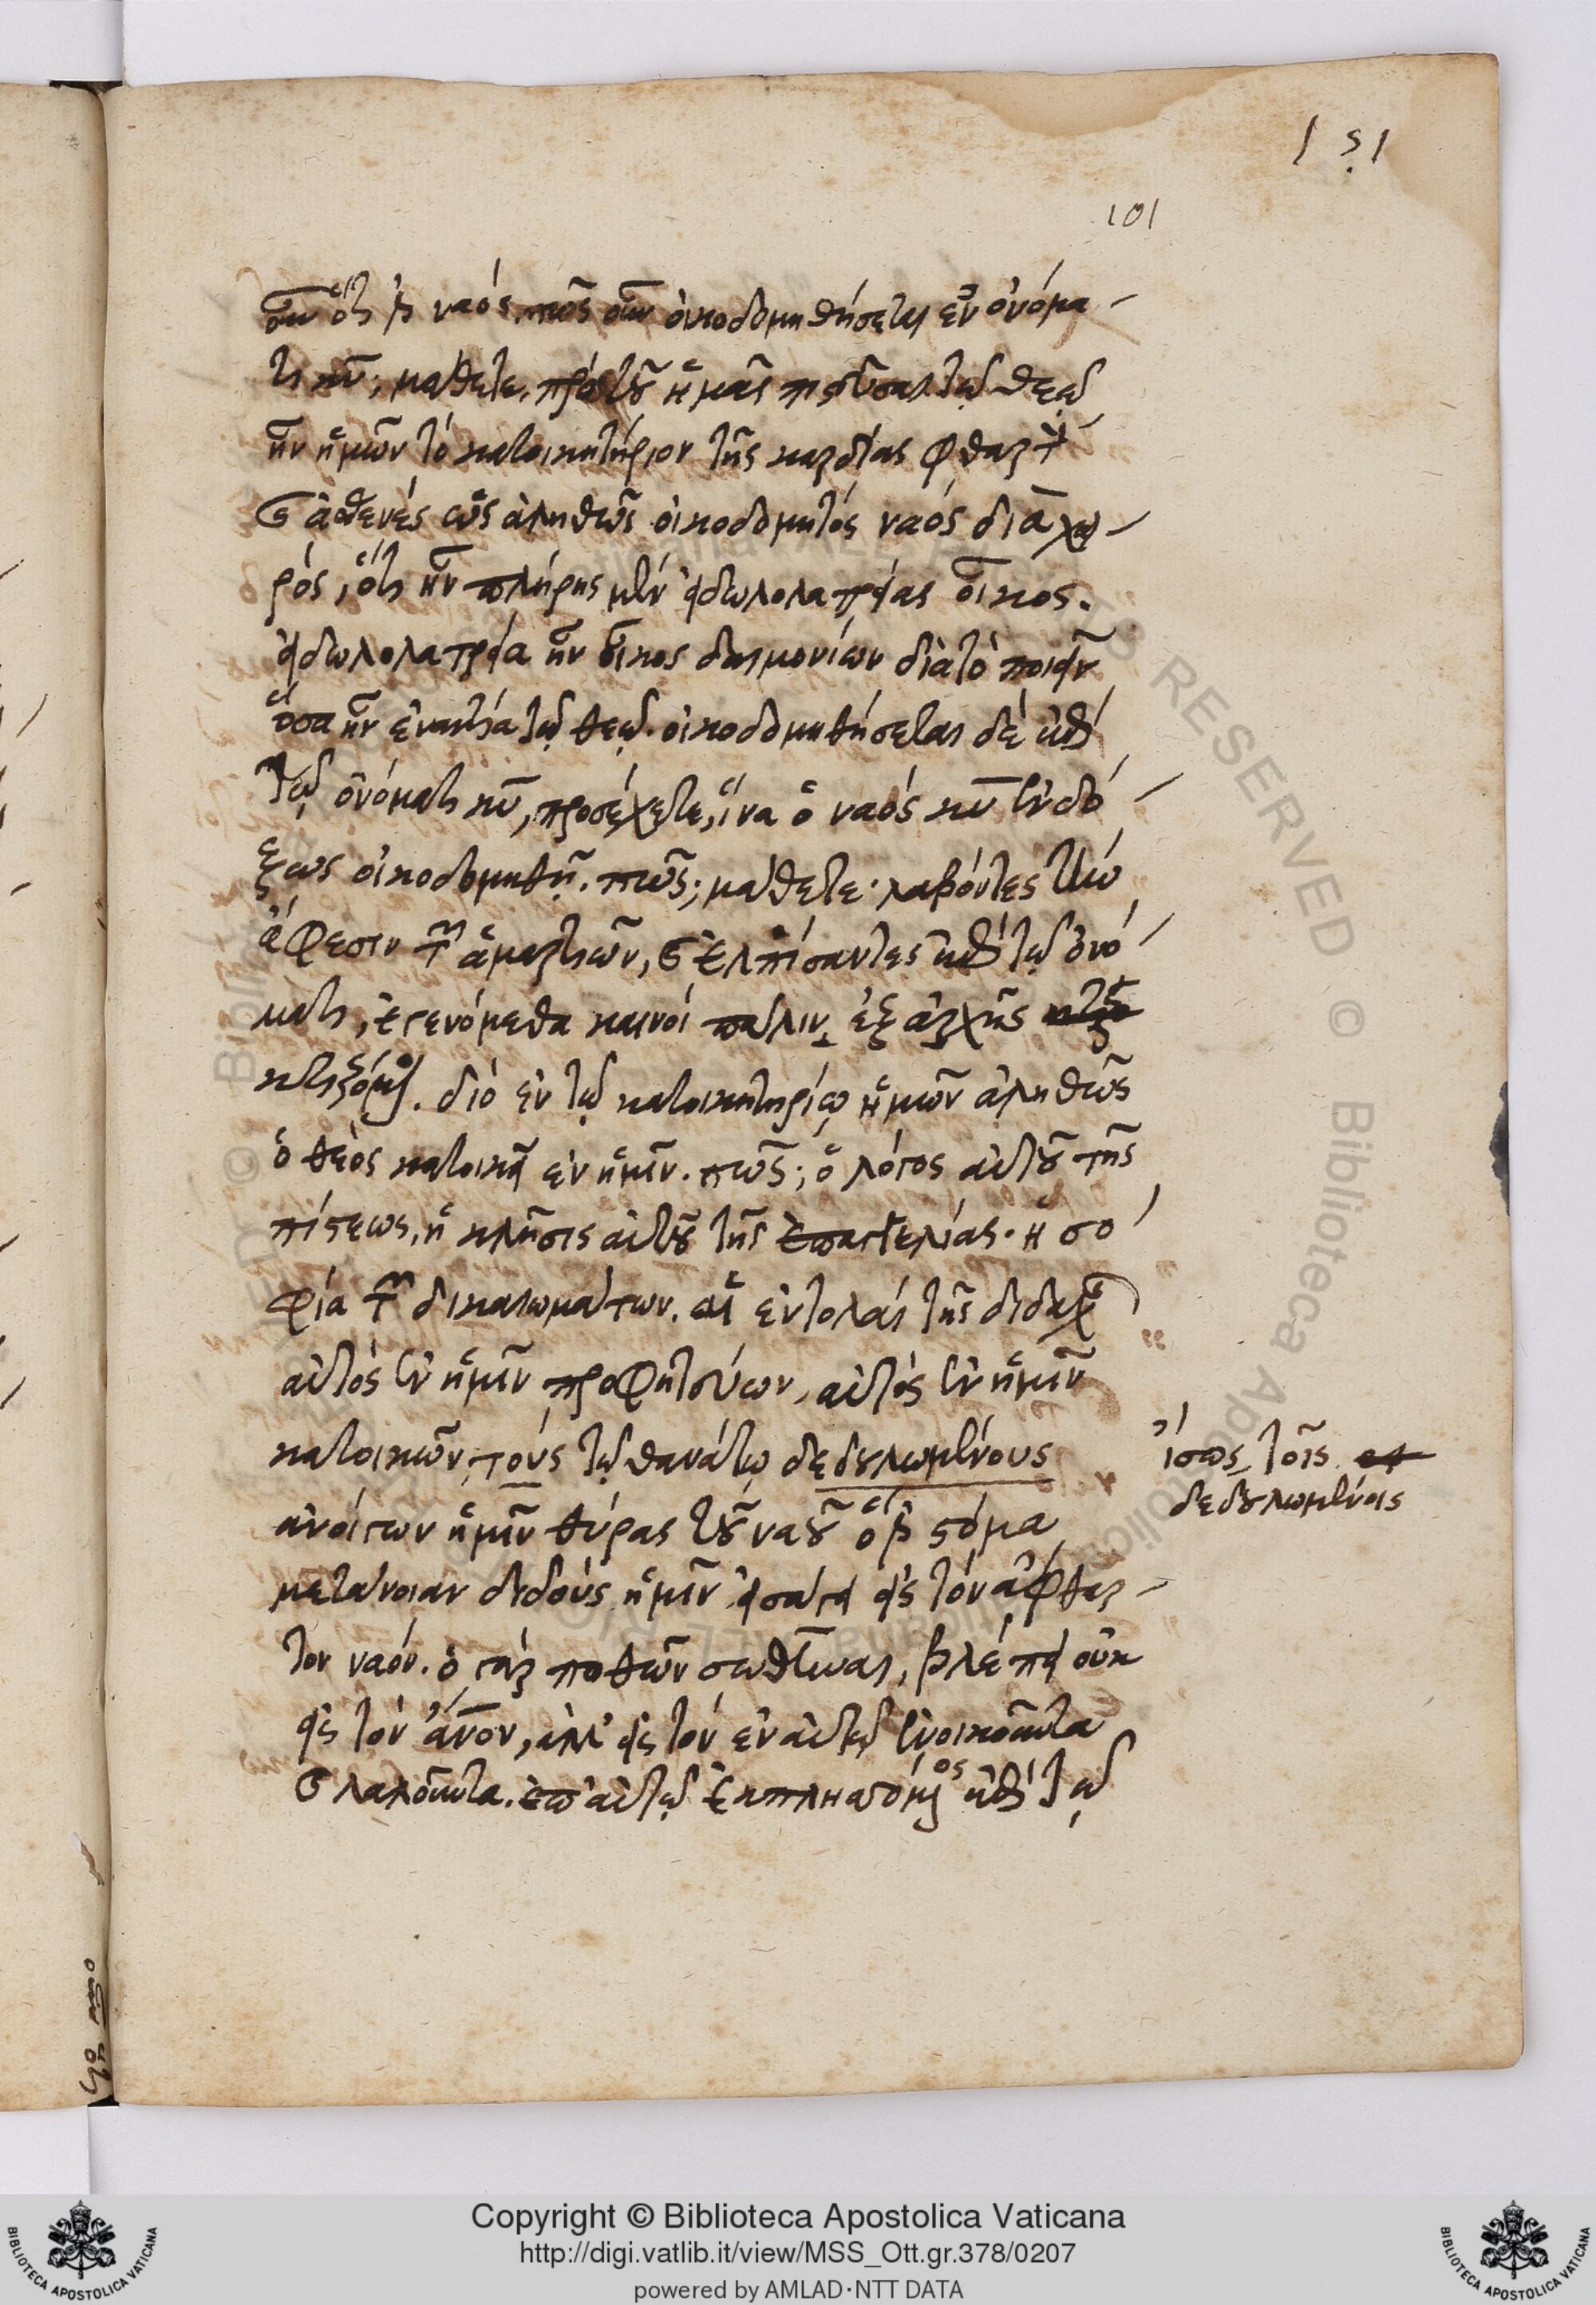 151
101
οὖν ὅτι ἐστὶ ναός. πῶς οὖν οἰκοδομηθήσεται ἐν ὀνόμα-
τι κυ̅; μάθετε. πρὸ τοῦ ἡμᾶς πιστεῦσαι τῷ θεῷ
ἦν ἡμῶν τὸ κατοικητήριον τῆς καρδίας φθαρτὸν
καὶ ἀσθενές ὡς ἀληθῶς οἰκοδομητός ναός διὰ χει-
ρός, ὅτι ἦν πλήρης μὲν εἰδωλολατρείας οἶκος.
εἰδωλολατρεία ἦν οἶκος δαιμονίων διὰ τὸ ποιεῖν
ὅσα ἦν ἐναντία τῷ θεῷ. οἰκοδομηθήσεται δὲ ἐπὶ
τῷ ὀνόματι κυ̅, προσέχετε, ἵνα ὁ ναός κυ̅ ἐνδό
ξως οἰκοδομηθῇ. πῶς; μάθετε· λαβόντες τὴν
ἄφεσιν τῶν ἁμαρτιῶν, καὶ ἐλπίσαντες ἐπὶ τῷ ὀνό-
ματι, ἐγενόμεθα καινοί πάλιν ἐξ ἀρχῆς
κτιζόμενοι. διὸ ἐν τῷ κατοικητηρίῳ ἡμῶν ἀληθῶς
ὁ θεὸς κατοικεῖ ἐν ἡμῖν. πῶς; ὁ λόγος αὐτοῦ τῆς
πίστεως, ἡ κλῆσις αὐτοῦ τῆς ἐπαγγελίας. ἡ σο
φία τῶν δικαιωμάτων. αἱ ἐντολαί τῆς διδαχῆς
αὐτὸς ἐν ἡμῖν προφητεύων, αὐτός ἐν ἡμῖν
κατοικῶν, τούς τῷ θανάτῳ δεδουλωμένους
ἀνοίγων ἡμῖν θύρας τοῦ ναοῦ ὅ ἐστι στόμα
μετάνοιαν διδούς ἡμῖν εἰσάγει εἰς τὸν ἄφθαρ-
τον ναόν. ὁ γὰρ ποθῶν σωθῆναι, βλέπει οὐκ
εἰς τὸν ἄνο̅ν, ἀλλ' εἰς τὸν ἐν αὐτῷ ἐνοικοῦντα
καὶ λαλοῦντα. ἐπ' αὐτῷ ἐκπλησσόμενος ἐπὶ τῷ
ἴσως τοῖς
δεδουλωμένοις
Copyright © Biblioteca Apostolica Vaticana
http://digi.vatlib.it/view/MSS_Ott.gr.378/0207
powered by AMLAD·NTT DATA
BIBLIOTECA APOSTOLICA VATICANA
BIBLIOTECA APOSTOLICA VATICANA